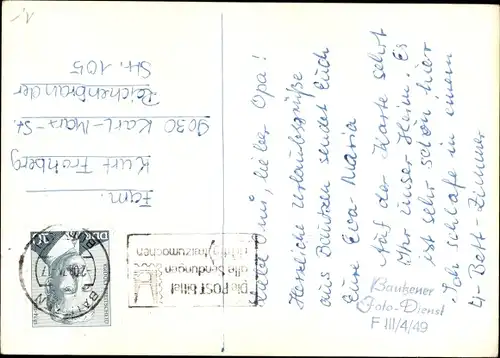 1,-
Liebe Omi, lieber Opa!
Herzliche Urlaubsgrüße
aus Bautzen sendet Euch
Eure Eva-Maria
Auf der Karte seht
Ihr unser Heim. Es
ist sehr schön hier
Ich schlafe in einem
4-Bett-Zimmer
Fam.
Kurt Frohberg
9030 Karl-Marx-St.
Reichenbrander
Str. 105
DDR
10
BAUTZEN
Die POST bittet
alle Sendungen
freizumachen
Bautzener
Foto-Dienst
F III/4/49